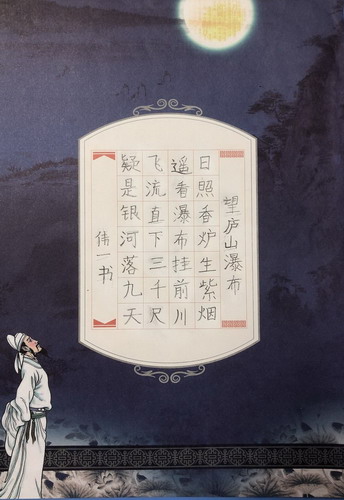 望庐山瀑布
日照香炉生紫烟
遥看瀑布挂前川
飞流直下三千尺
疑是银河落九天
伟一书